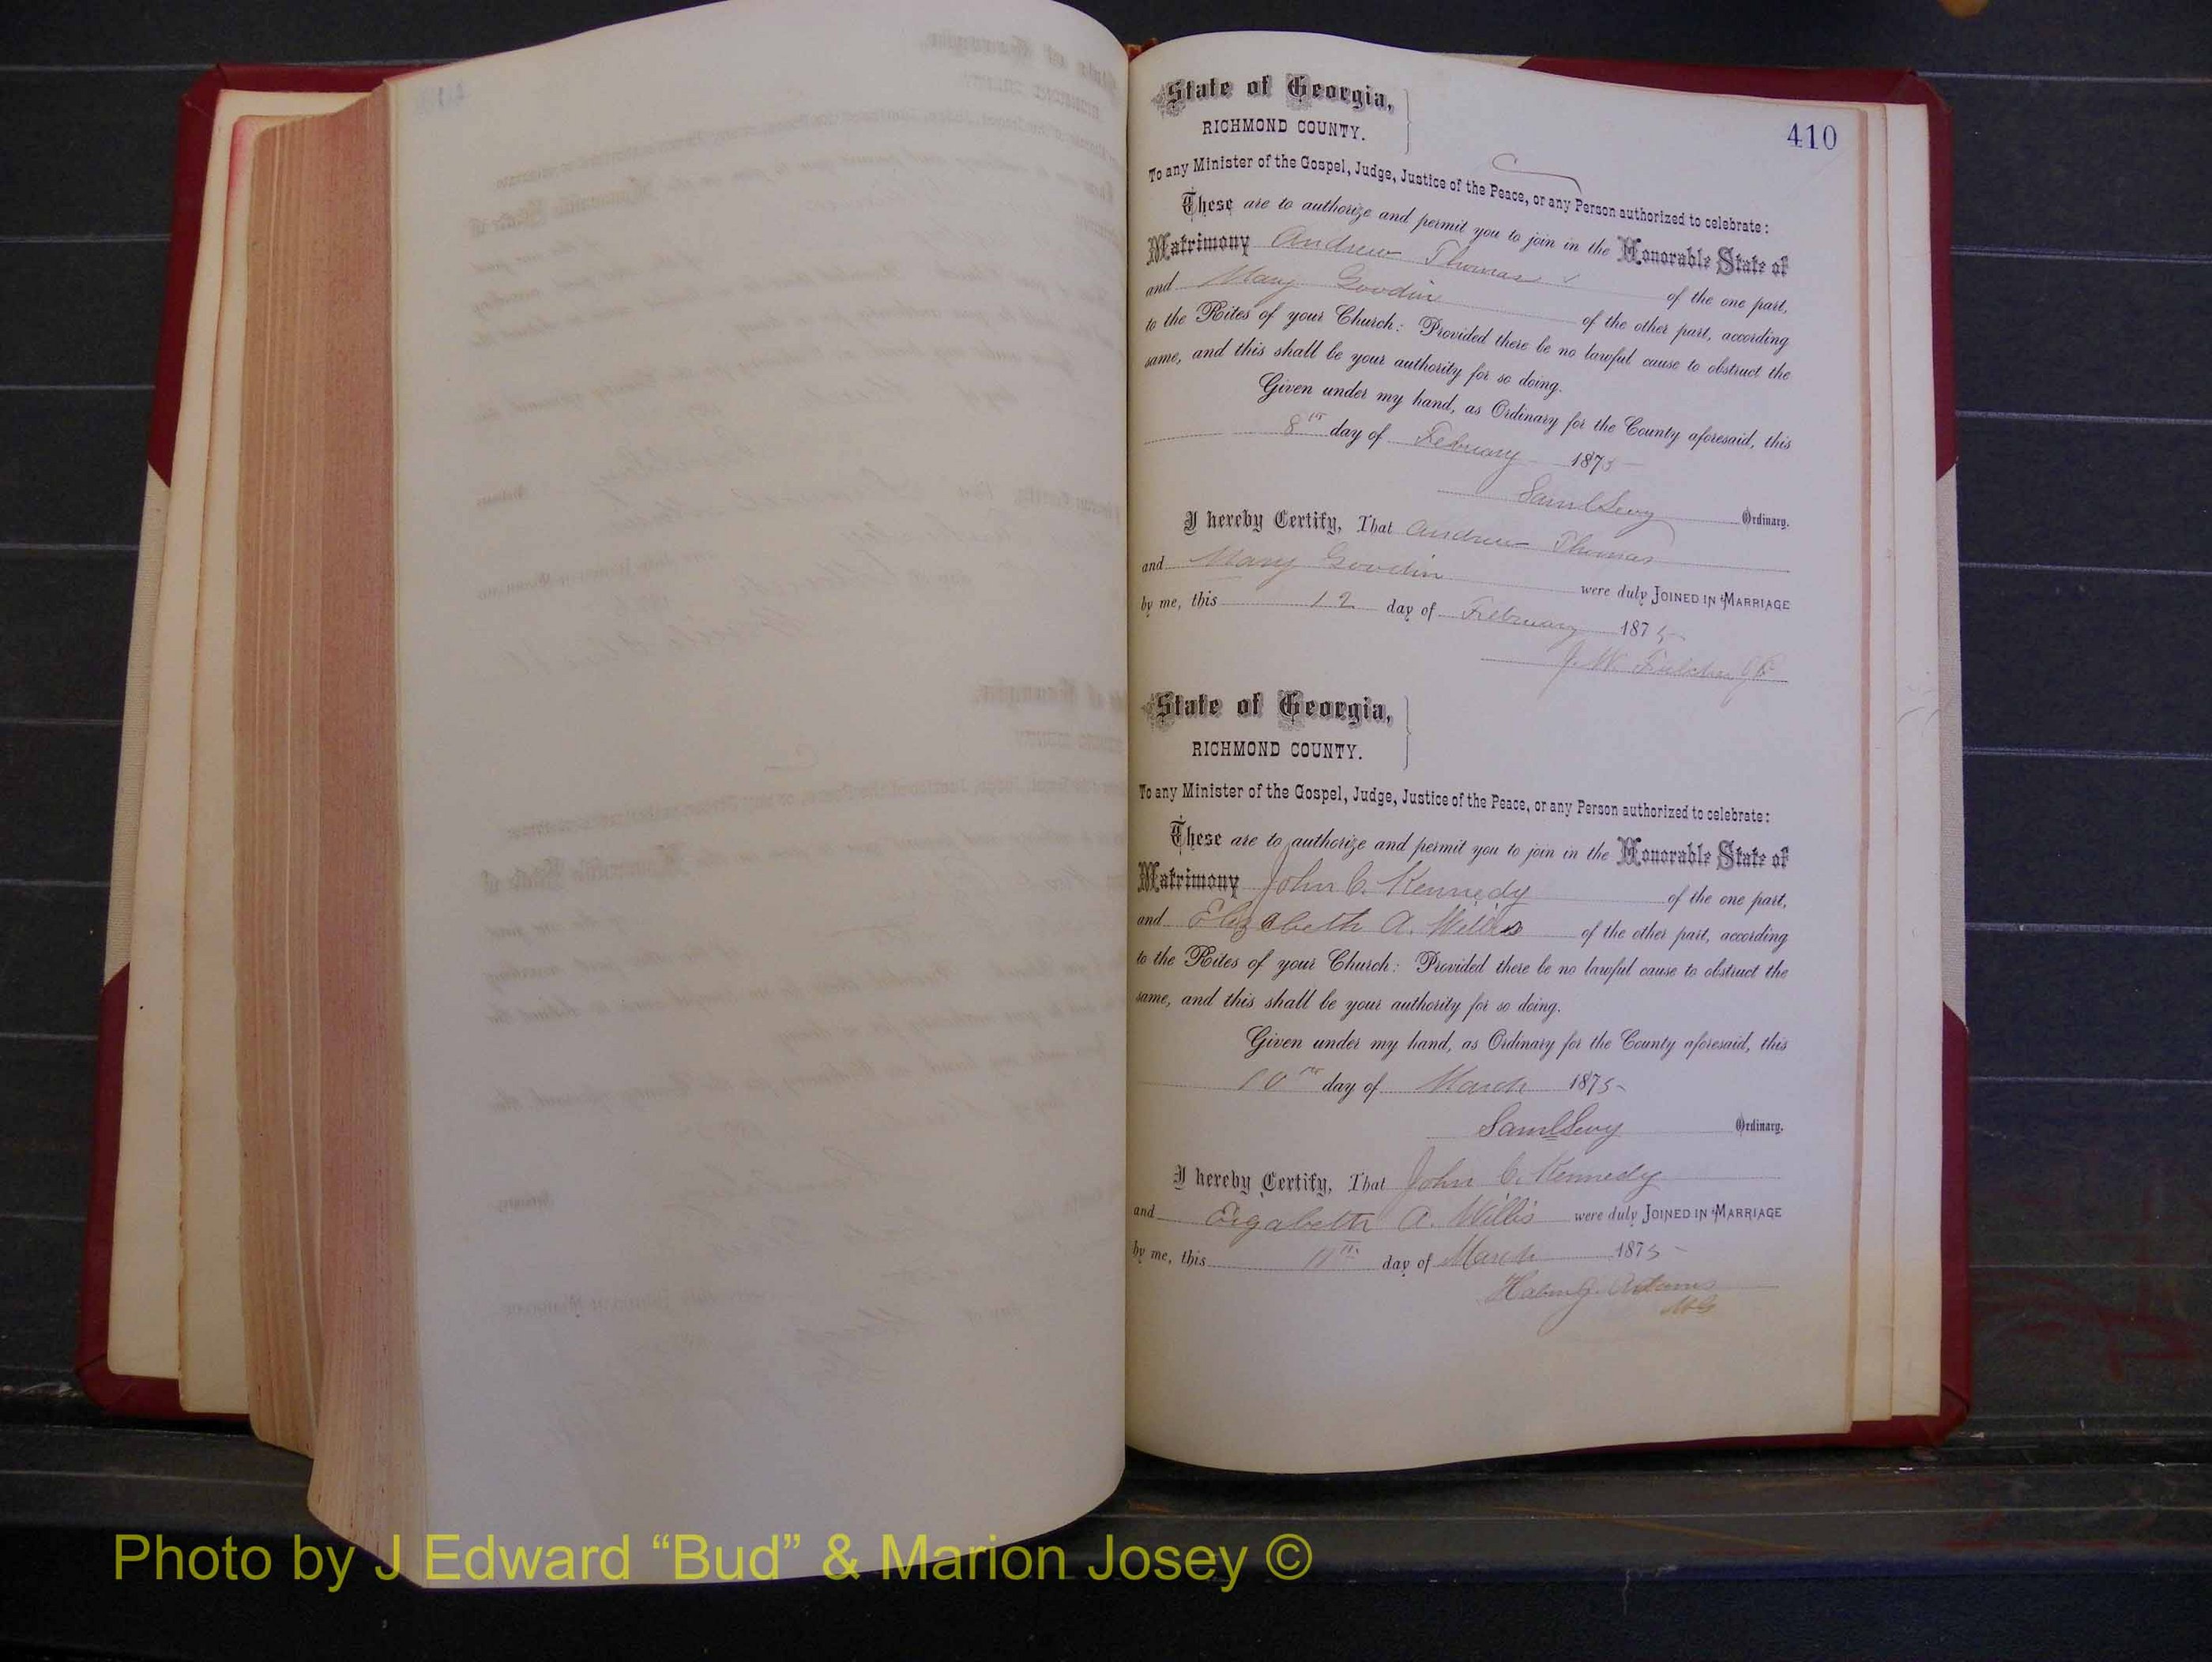 410
State of Georgia,
RICHMOND COUNTY.
To any Minister of the Gospel, Judge, Justice of the Peace, or any Person authorized to celebrate:
These are to authorize and permit you to join in the Honorable State of
Matrimony Andrew Thomas of the one part,
and Mary Goodin of the other part, according
to the Rites of your Church: Provided there be no lawful cause to obstruct the
same, and this shall be your authority for so doing.
Given under my hand, as Ordinary for the County aforesaid, this
8th day of February 1875
Saml Levy Ordinary.
I hereby Certify, That Andrew Thomas
and Mary Goodin were duly JOINED IN MARRIAGE
by me, this 12 day of February 1875
J. W.
State of Georgia,
RICHMOND COUNTY.
To any Minister of the Gospel, Judge, Justice of the Peace, or any Person authorized to celebrate:
These are to authorize and permit you to join in the Honorable State of
Matrimony John C. Kennedy of the one part,
and Elizabeth A. Willis of the other part, according
to the Rites of your Church: Provided there be no lawful cause to obstruct the
same, and this shall be your authority for so doing.
Given under my hand, as Ordinary for the County aforesaid, this
10th day of March 1875
Saml Levy Ordinary.
I hereby Certify, That John C. Kennedy
and A. Willis were duly JOINED IN MARRIAGE
by me, this 11th day of March 1875
Adams
MG
Photo by J Edward “Bud” & Marion Josey ©